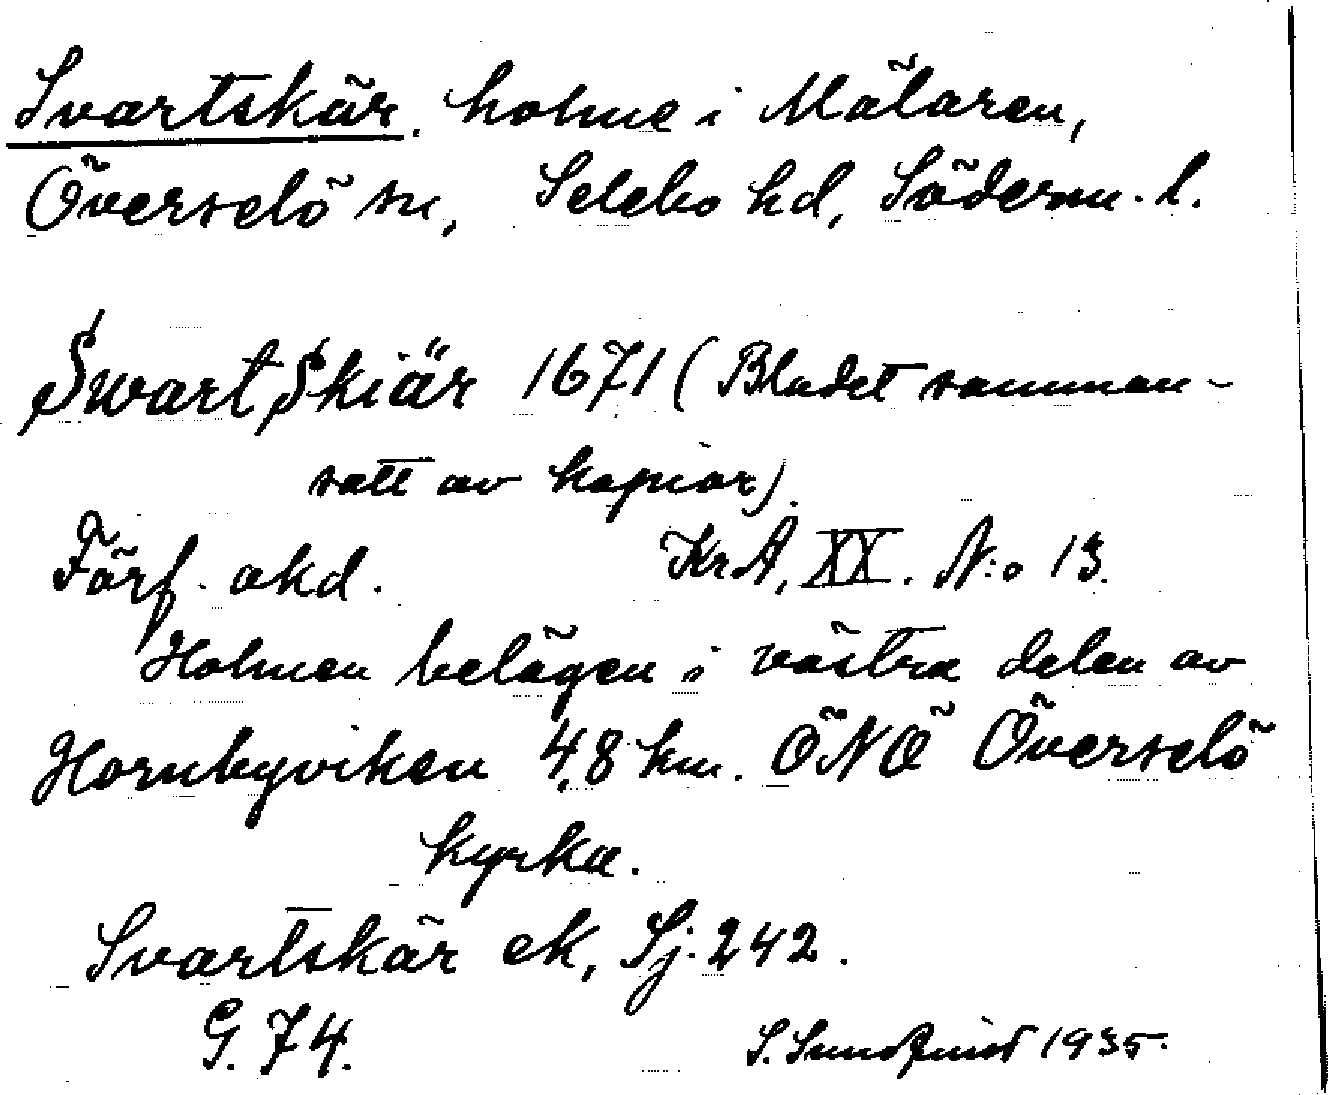 Svartskär, holme i Mälaren,
Överselö sn, Selebo hd, Söderm. l.
Swart Skiär 1671 (Bladet samman-
satt av kopior).
Förf. okd. KrA, XX. N:o 13.
Holmen belägen i västra delen av
Hornbyviken 4,8 km. ÖNÖ Överselö
kyrka.
Svartskär ek, Sj. 242.
G. 74. S. Sundquist 1935.